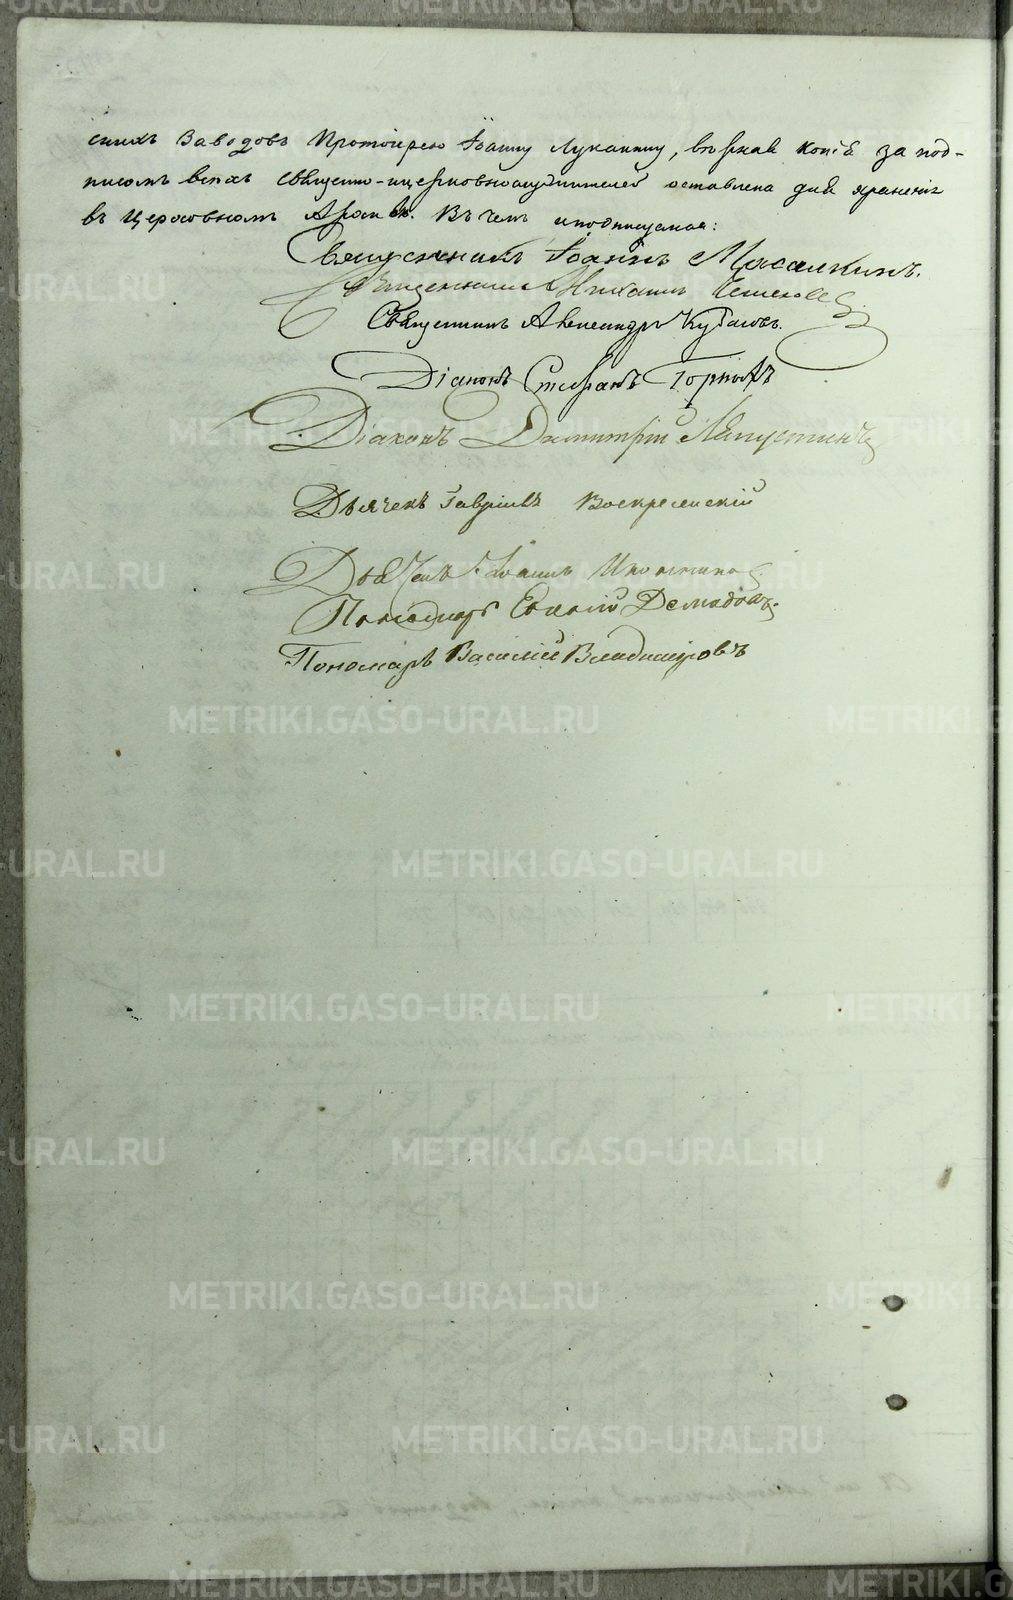 скихъ Заводовъ Протоіерею Іоанну Луканину, вѣрная копія за под-
писомъ всѣхъ священно-церковнослужителей оставлена для храненія
въ Церковномъ Архивѣ. Въ чемъ и подписуемся:
Священникъ Іоаннъ Масалкинъ.
Священникъ Михаилъ
Священникъ Александръ Кутасовъ.
Діаконъ Стефанъ Горныхъ
Діаконъ Димитрій Ляпустинъ
Дьячекъ Гавріилъ Воскресенскій
Дьячекъ Іоаннъ
Пономарь Евгеній Демидовъ.
Пономарь Василій Владиміровъ
METRIKI.GASO-URAL.RU